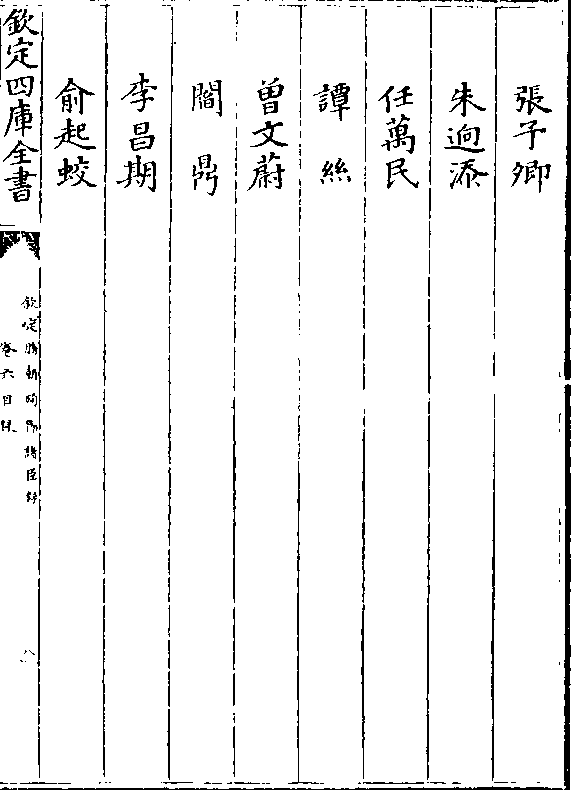 張子卿
朱逈添
任萬民
譚絲
曽文蔚
閻鼎
李昌期
俞起蛟
欽定四庫全書
欽定勝朝殉節諸臣録
卷六目録
八